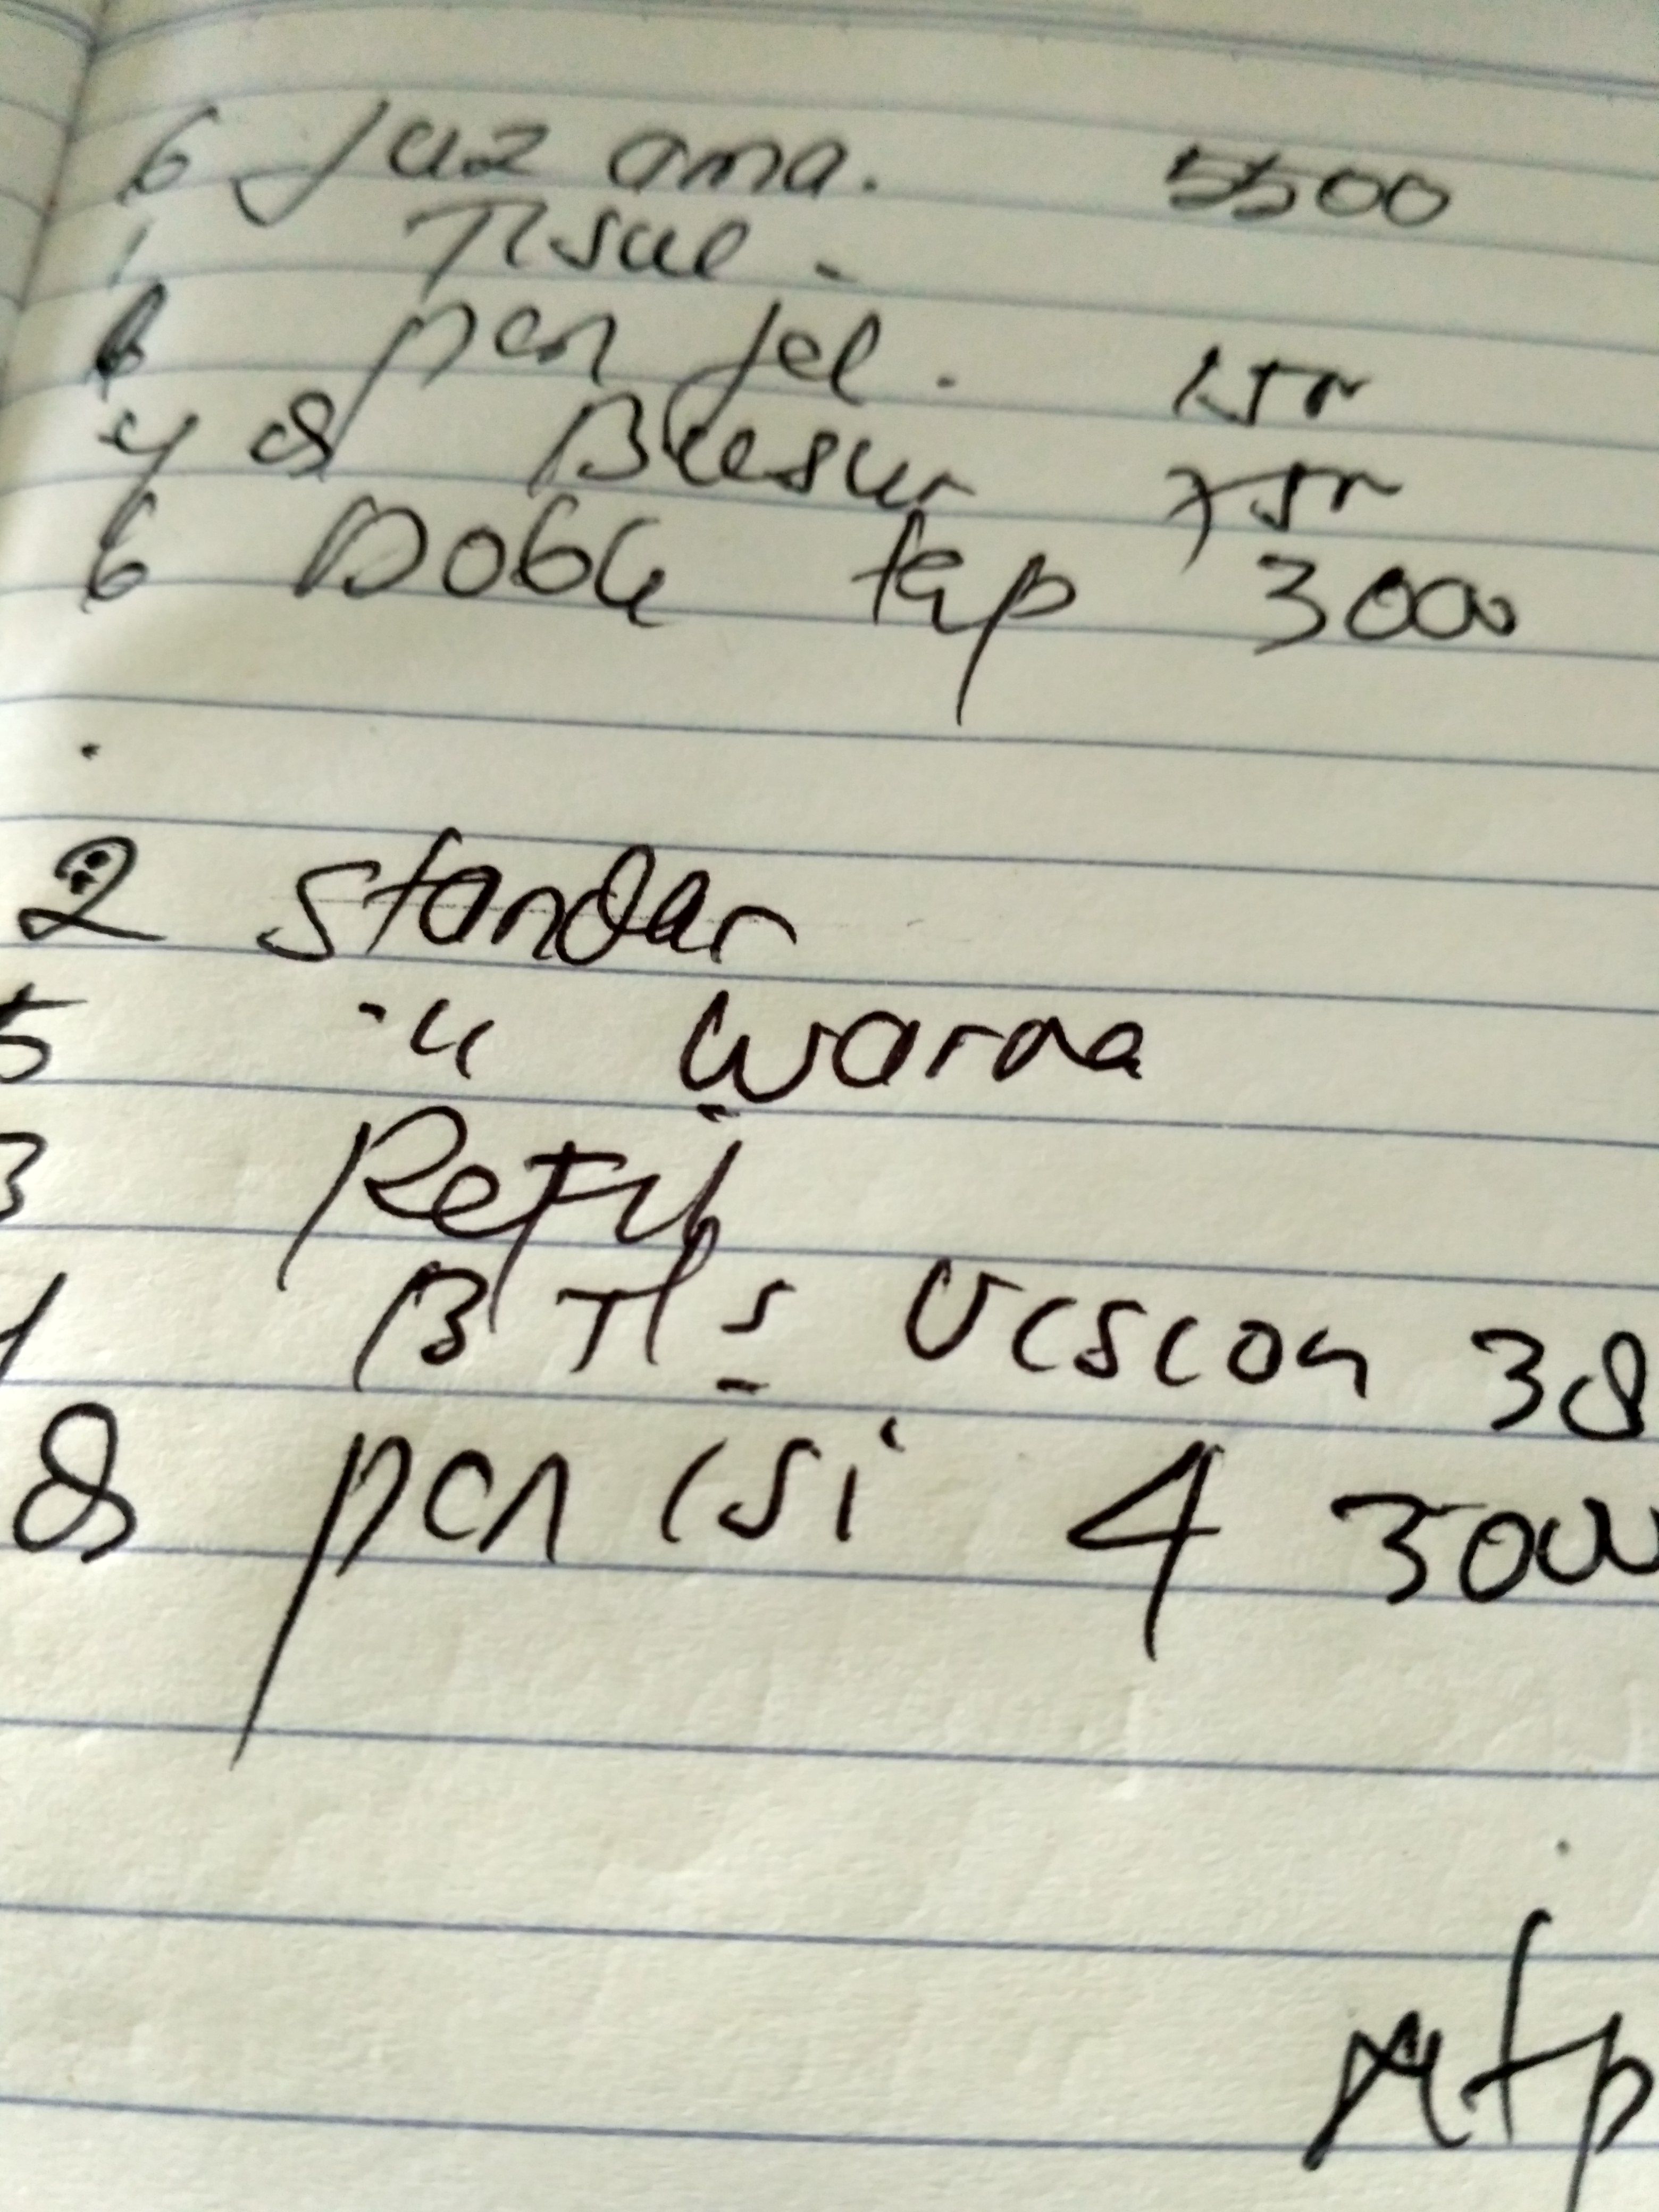 6 Juz ama. 5500
1 Tisue.
6 pen jel. 15r
4 8 Besur 75r
6 Doble tep 3000
2 Standar
5 -u warna
3 Refil
1 BTLS Vescon 38
8 pen isi 4 3000